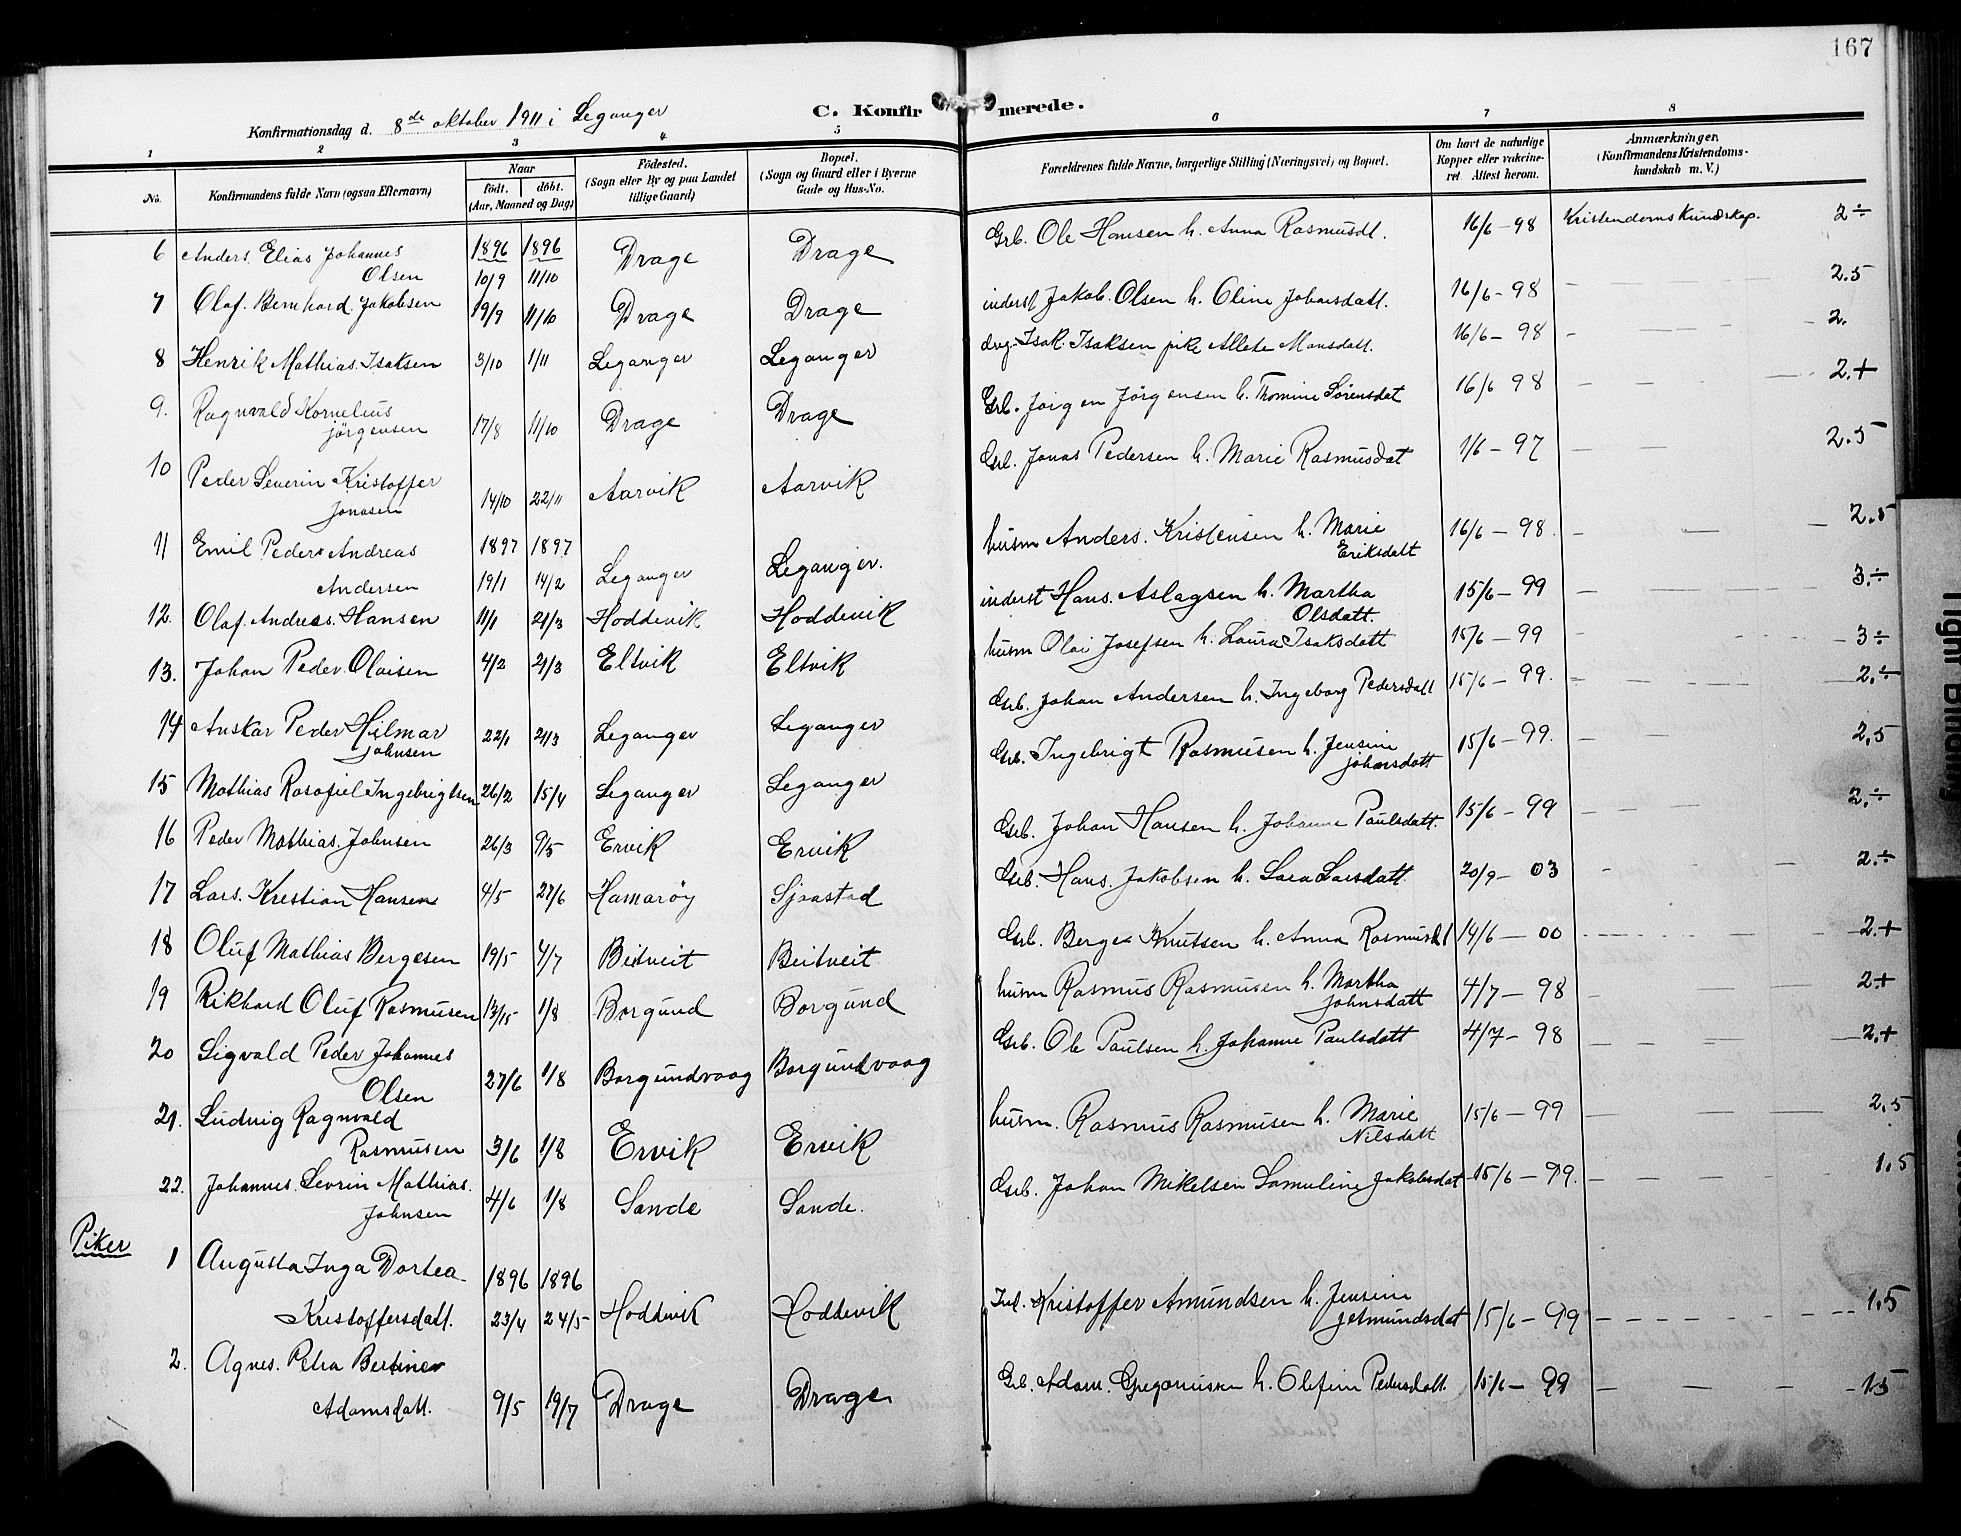 167
C. Konfirmerede.
Konfirmationsdag d. 8de oktober 1911 i Leganger
1 2 3 4 5 6 7 8
No. Konfirmandens fulde Navn (ogsaa Efternavn) Naar födt. döbt. (Aar, Maaned og Dag) Födested. (Sogn eller By og paa Landet tillige Gaard) Bopæl. (Sogn og Gaard eller i Byerne Gade og Hus-No. Forældrenes fulde Navne, borgerlige Stilling (Næringsvei) og Bopæl. Om havt de naturlige Kopper eller vakcineret. Attest herom. Anmærkninger. (Konfirmandens Kristendomskundskab m. V.)
6 Anders Elias Johannes Olsen 1896 10/9 1896 11/10 Drage Drage Grb. Ole Hansen h. Anna Rasmusdt. 16/6-98 Kristendomskundskap. 2÷
7 Olaf. Bernhard Jakobsen 19/9 11/10 Drage Drage inderst Jakob. Olsen h. Oline Johansdatt. 16/6-98 2.5
8 Henrik Mathias. Isaksen 3/10 1/11 Leganger Leganger Isak. Isaksen pike Allete Monsdatt. 16/6-98 2.
9. Ragnvald Kornelius Jörgensen 17/8 11/10 Drage Drage Grb. Jörgen Jörgensen h. Thomine Sörensdat 16/6 98 2.+
10 Peder Severin Kristoffer Jonasen 14/10 22/11 Aarvik Aarvik Grb. Jonas Pedersen h. Marie Rasmusdat 1/6-97 2.5
11 Emil Peder Andreas Andersen 1897 19/1 1897 14/2 Leganger Leganger. husm Anders. Kristensen h. Marie Eriksdatt 16/6-98. 2.5
12. Olaf. Andreas. Hansen 11/1 21/3 Hoddevik Hoddevik inderst Hans. Aslagsen h. Martha Olsdatt. 15/6-99 3÷
13. Johan Peder Olaisen 4/2 21/3 Eltvik Eltvik husm Olai Josefsen h. Laura Isaksdatt 15/6-99 3÷
14 Anskar Peder Hilmar Johnsen 22/1 21/3 Leganger Leganger Grb. Johan Andersen h. Ingeborg Pedersdatt 15/6-99. 2.÷
15 Mathias Rasafiel Ingebrigtsen 26/2 15/4 Leganger Leganger Grb. Ingebrigt Rasmusen h. Jensine Johansdatt 15/6-99. 2,5
16 Peder Mathias. Johnsen 26/3 9/5 Ervik Ervik Grb. Johan Hansen h. Johanne Paulsdatt. 15/6-99 2.÷
17 Lars. Kristian Hansen 4/5 27/6 Hamaröy Sjaastad Grb. Hans. Jakobsen h. Sara Larsdatt. 20/9-03 2.÷
18 Oluf Mathias Bergesen 19/5 4/7 Beitveit Beitveit Grb. Berge Knutsen h. Anna Rasmusdt 14/6-00 2.+
19 Rikhard Oluf Rasmusen 13/15 1/8 Borgund Borgund husm Rasmus Rasmusen h. Martha Johnsdatt 4/7-98 2+
20 Sigvald Peder Johannes Olsen 27/6 1/8 Borgundvaag Borgundvaag Grb. Ole Paulsen h. Johanne Paulsdatt 4/7-98 2.+
21. Ludvig Ragnvald Rasmusen 3/6 1/8 Ervik Ervik husm. Rasmus Rasmusen h. Marie Nilsdatt 15/6-99 2,5
22. Johannes. Sevrin Mathias. Johnsen 4/6 1/8 Sande Sande. Grb. Johan Mikelsen Samuline Jakobsdat 15/6-99. 1.5
Piker
1 Augusta Inga Dortea Kristoffersdatt. 1896 23/4 1896 24/5 Hoddevik Hoddevik Ind. Kristoffer Amundsen h. Jensine Jetmundsdat 15/6-99 1.5
2. Agnes. Petra Bertine Adamsdatt. 9/5 19/7 Drage Drage Grb. Adam. Gregoriussen h. Olefine Pedersdatt. 15/6-99 1.5